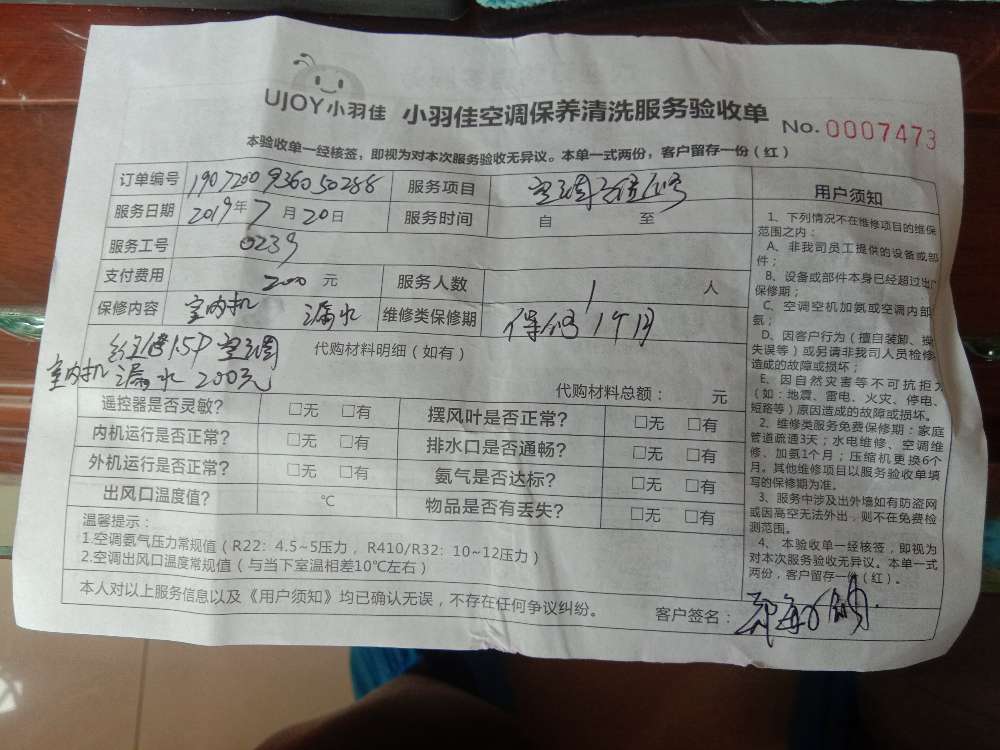 UJOY小羽佳 小羽佳空调保养清洗服务验收单 No. 0007473
本验收单一经核签，即视为对本次服务验收无异议。本单一式两份，客户留存一份（红）
订单编号 1907200936050288 服务项目 空调
服务日期 2019年7月20日 服务时间 自 至
服务工号 0239
支付费用 200 元 服务人数 1 人
保修内容 室内机 漏水 维修类保修期 保修1个月
1.5P空调 代购材料明细（如有）
室内机漏水200元 代购材料总额： 元
遥控器是否灵敏？ □无 □有 摆风叶是否正常？ □无 □有
内机运行是否正常？ □无 □有 排水口是否通畅？ □无 □有
外机运行是否正常？ □无 □有 氨气是否达标？ □无 □有
出风口温度值？ ℃ 物品是否有丢失？ □无 □有
温馨提示：
1.空调氨气压力常规值（R22：4.5~5压力，R410/R32：10~12压力）
2.空调出风口温度常规值（与当下室温相差10℃左右）
本人对以上服务信息以及《用户须知》均已确认无误，不存在任何争议纠纷。 客户签名：
用户须知
1、下列情况不在维修项目的维保
范围之内：
A、非我司员工提供的设备或部
件；
B、设备或部件本身已经超过出厂
保修期；
C、空调空机加氨或空调内部
氨；
D、因客户行为（擅自装卸、操
失误等）或另请非我司人员检修
造成的故障或损坏；
E、因自然灾害等不可抗拒力
（如：地震、雷电、火灾、停电、
短路等）原因造成的故障或损坏。
2、维修类服务免费保修期：家庭
管道疏通3天；水电维修、空调维
修、加氨1个月；压缩机更换6个
月。其他维修项目以服务验收单填
写的保修期为准。
3、服务中涉及出外墙如有防盗网
或因高空无法外出，则不在免费检
测范围。
4、本验收单一经核签，即视为
对本次服务验收无异议。本单一式
两份，客户留存一份（红）。